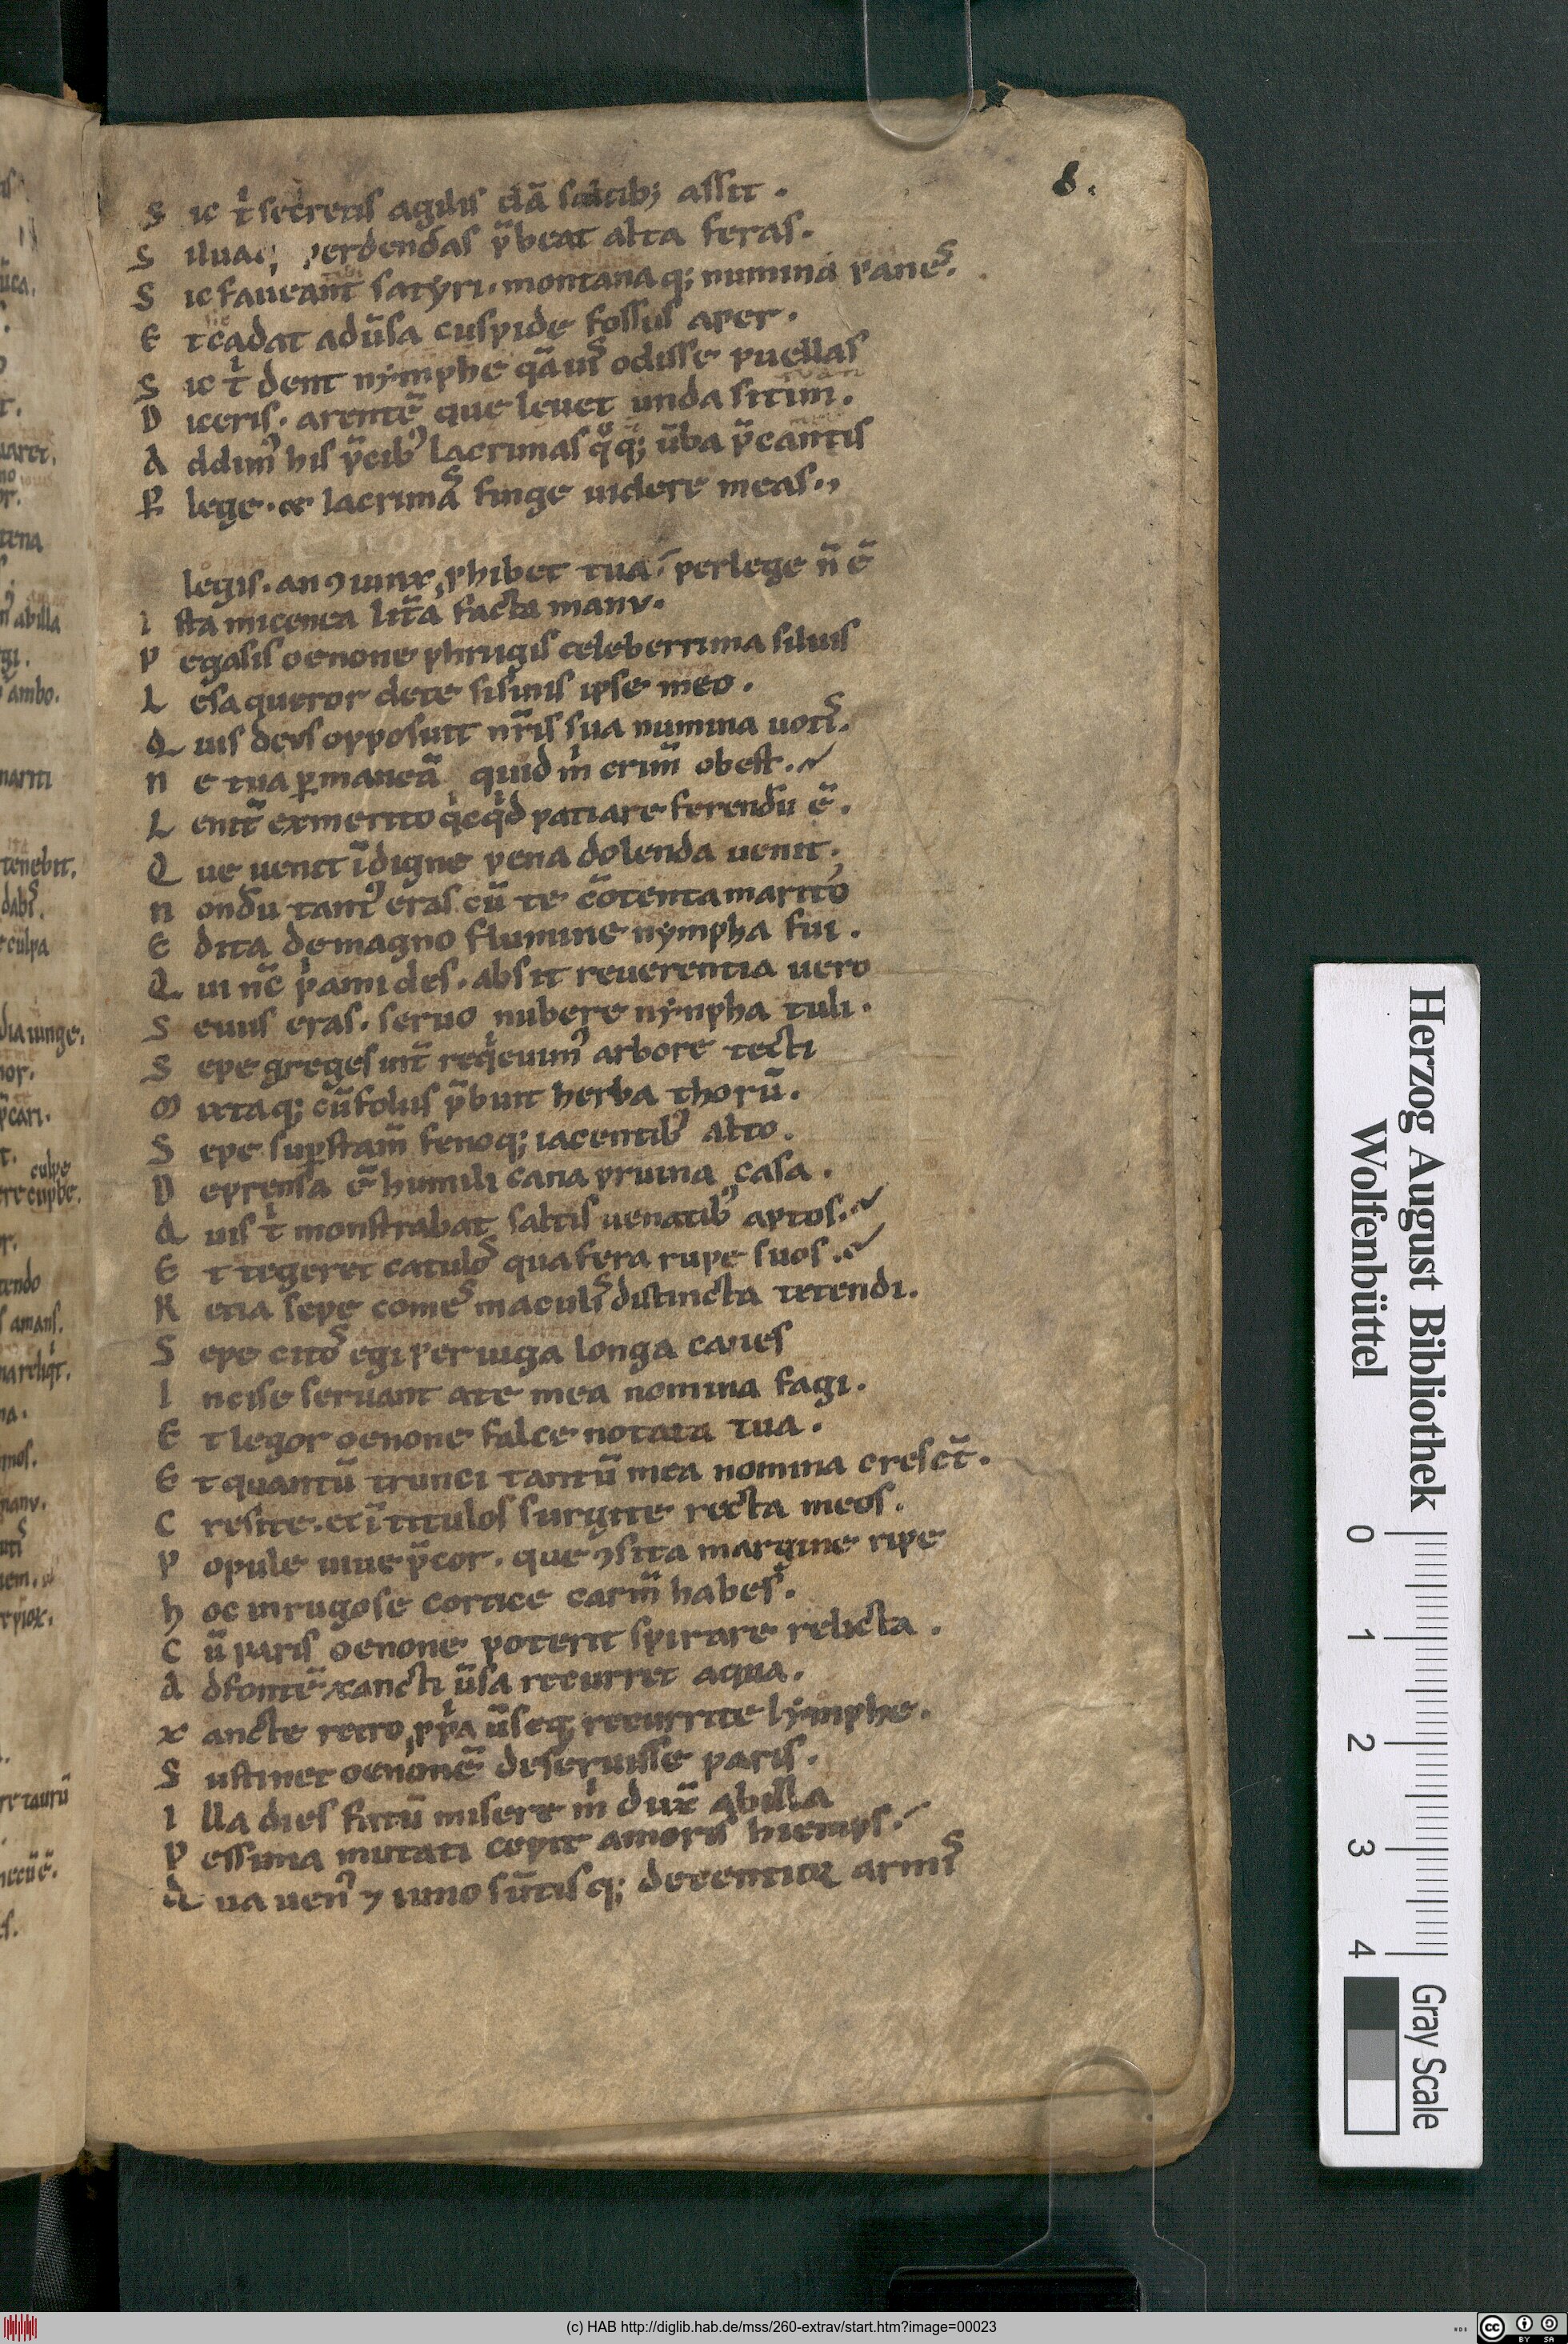 8.
S ic t̉ secretis agilis dēa saltib; assit .
S iluaq; perdendas p̄beat alta feras.
S ic faueant satyri. montanaq; numina paneˢ.
E t cadat adūsa cuspide fossus aper.
S ic t̉ dent nymphe q̄āuiˢ odisse puellas
D iceris. arentē que leuet unda sitim.
A ddimꝰ his p̄cibꝰ lacrimas q̊q; ūba p̄cantis
P lege. & lacrimaˢ finge uidere meas.,
legis. an ꝯiunx ꝓhibet tua? perlege n̄ ē
I sta micenea lit̄a facta manu.
P egasis oenone phrugis celeberrima siluis
L esa queror de te si sinis ipse meo.
Q uis deus opposuit nr̄is sua numina uotiˢ.
N e tua ꝑmaneā quid m̉ crim̄ obest.
L enit̄ ex merito q̉cq̉d patiare ferendū ē.
Q ue uenit īdigne pena dolenda uenit.
N ondū tantꝰ eras cū te c̄otenta marito
E dita de magno flumine nympha fui.
Q ui nc̄ p̉amides. absit reuerentia uero
S eruus eras. seruo nubere nympha tuli.
S epe greges int̄ req̉euimꝰ arbore tecti
M ixtaq; cū foliis p̄buit herba thorū.
S epe suꝑ stam̄ fenoq; iacentibꝰ alto.
D eprensa ē humili cana pruina casa.
Q uis t̉ monstrabat saltus uenatibꝰ aptos.
E t tegeret catuloˢ qua fera rupe suos.
R etia sepe comeˢ maculiˢ distincta tetendi.
S epe citoˢ egi per iuga longa canes
I ncise seruant a te mea nomina fagi.
E t legor oenone falce notata tua.
E t quantū trunci tantū mea nomina cresct̄.
C resite. et ī titulos surgite recta meos.
P opule uiue p̄cor. que ꝯsita margine ripe
h oc in rugose cortice carm̄ habes.
C ū paris oenone poterit spirare relicta .
A d fontē xancti ūsa recurret aqua.
X ancte retro ꝓpa ūseq; recurrite lymphe.
S ustinet oenonē deseruisse paris.
I lla dies fatū misere m̉ dux̄ ab illa
P essima mutati cepit amoris hiemps.
Q ua uenꝰ ⁊ iuno sūtisq; decentior armiˢ
Herzog August Bibliothek
Wolfenbüttel
0 1 2 3 4
Gray Scale
(c) HAB http://diglib.hab.de/mss/260-extrav/start.htm?image=00023